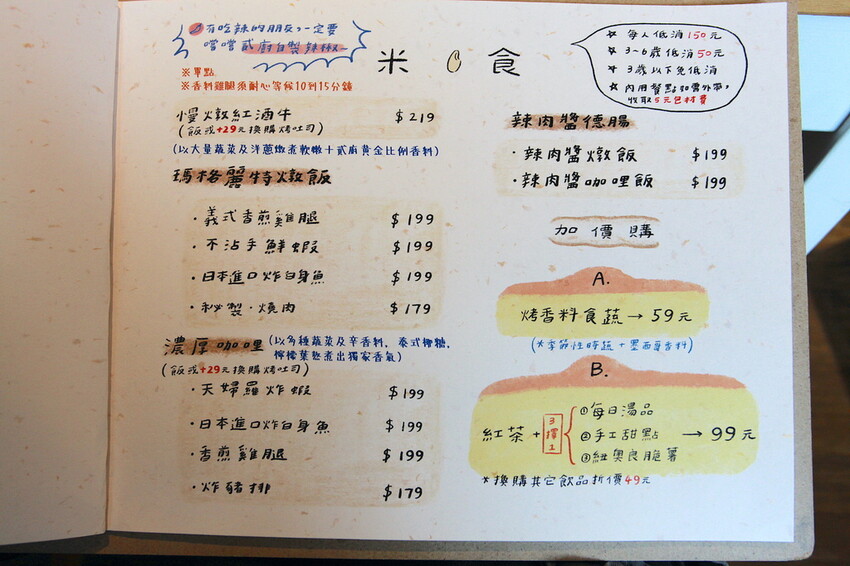 有吃辣的朋友,一定要
嚐嚐貳廚自製辣椒~
米食
※單點
※香料雞腿須耐心等候10到15分鐘
慢燉紅酒牛 $219
(飯或+29元換購烤吐司)
(以大量蔬菜及洋蔥燉煮軟嫩+貳廚黃金比例香料)
瑪格麗特燉飯
·義式香煎雞腿 $199
·不沾手鮮蝦 $199
·日本進口炸白身魚 $199
·秘製·燒肉 $179
濃厚咖哩 (以多種蔬菜及辛香料,泰式椰糖,
檸檬葉熬煮出獨家香氣)
(飯或+29元換購烤吐司)
·天婦羅炸蝦 $199
·日本進口炸白身魚 $199
·香煎雞腿 $199
·炸豬排 $179
☆ 每人低消150元
☆ 3~6歲低消50元
☆ 3歲以下免低消
☆ 內用餐點如需外帶,
收取5元包材費
辣肉醬德腸
·辣肉醬燉飯 $199
·辣肉醬咖哩飯 $199
加價購
A.
烤香料食蔬→59元
(*季節性時蔬+墨西哥香料)
B.
紅茶+ 3擇1 ①每日湯品
②手工甜點 →99元
③紐奧良脆薯
*換購其它飲品折價49元